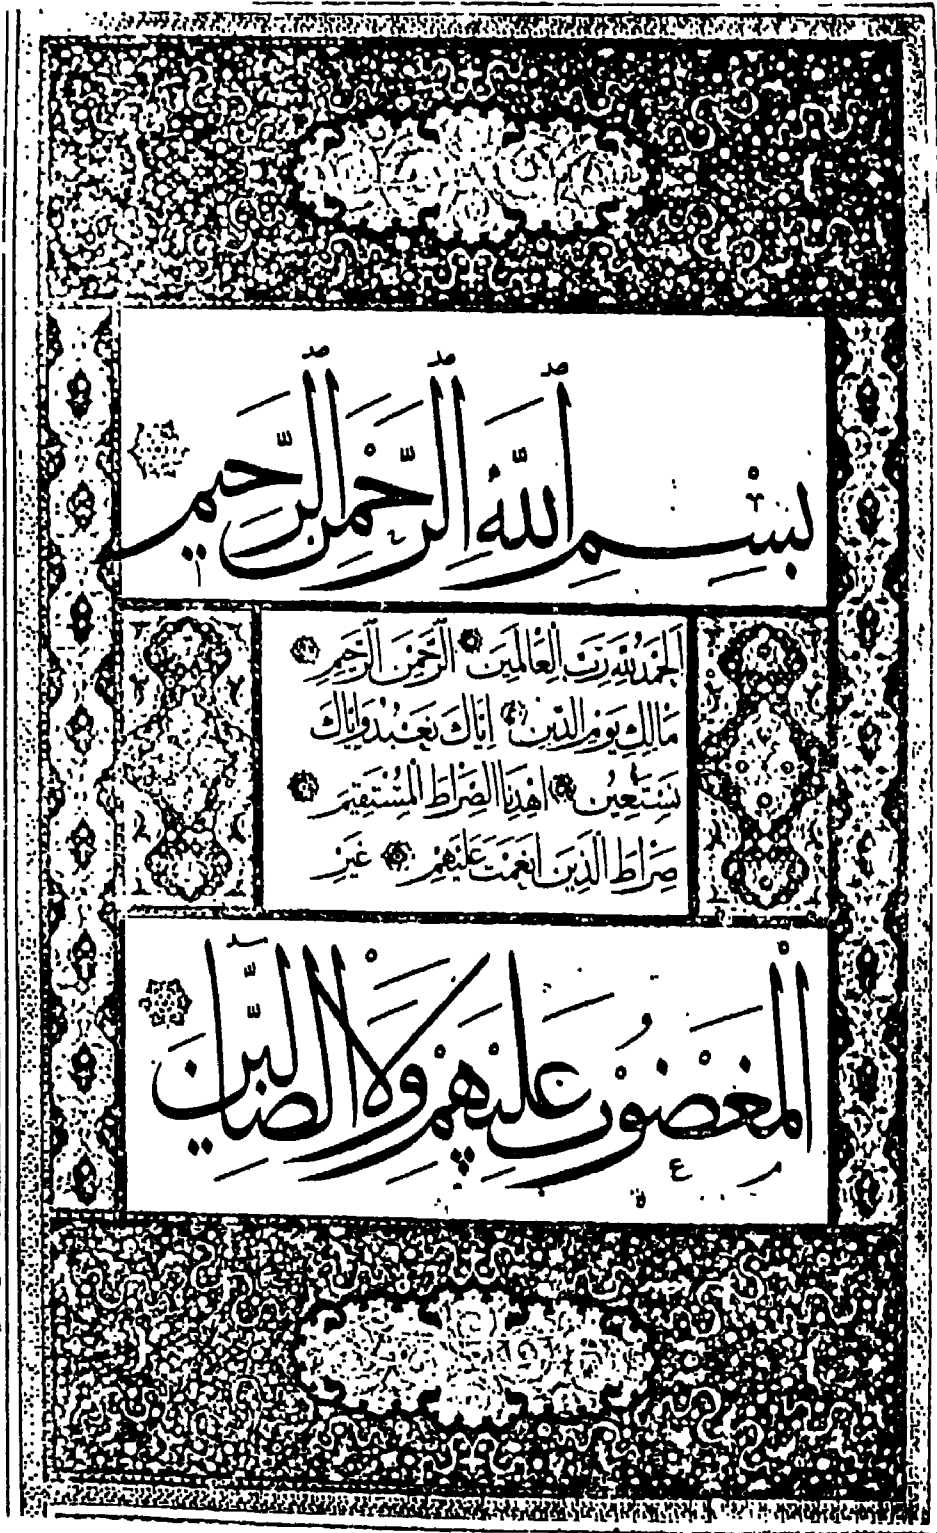 بِسْمِ ٱللَّهِ ٱلرَّحْمَنِ ٱلرَّحِيمِ
اَلْحَمْدُ لِلَّهِ رَبِّ الْعَالَمِينَ الرَّحْمَنِ الرَّحِيمِ
مَالِكِ يَوْمِ الدِّينِ اِيَّاكَ نَعْبُدُ وَاِيَّاكَ
نَسْتَعِينُ اِهْدِنَا الصِّرَاطَ الْمُسْتَقِيمَ
صِرَاطَ الَّذِينَ اَنْعَمْتَ عَلَيْهِمْ غَيْرِ
الْمَغْضُوبِ عَلَيْهِمْ وَلَا الضَّالِّينَ